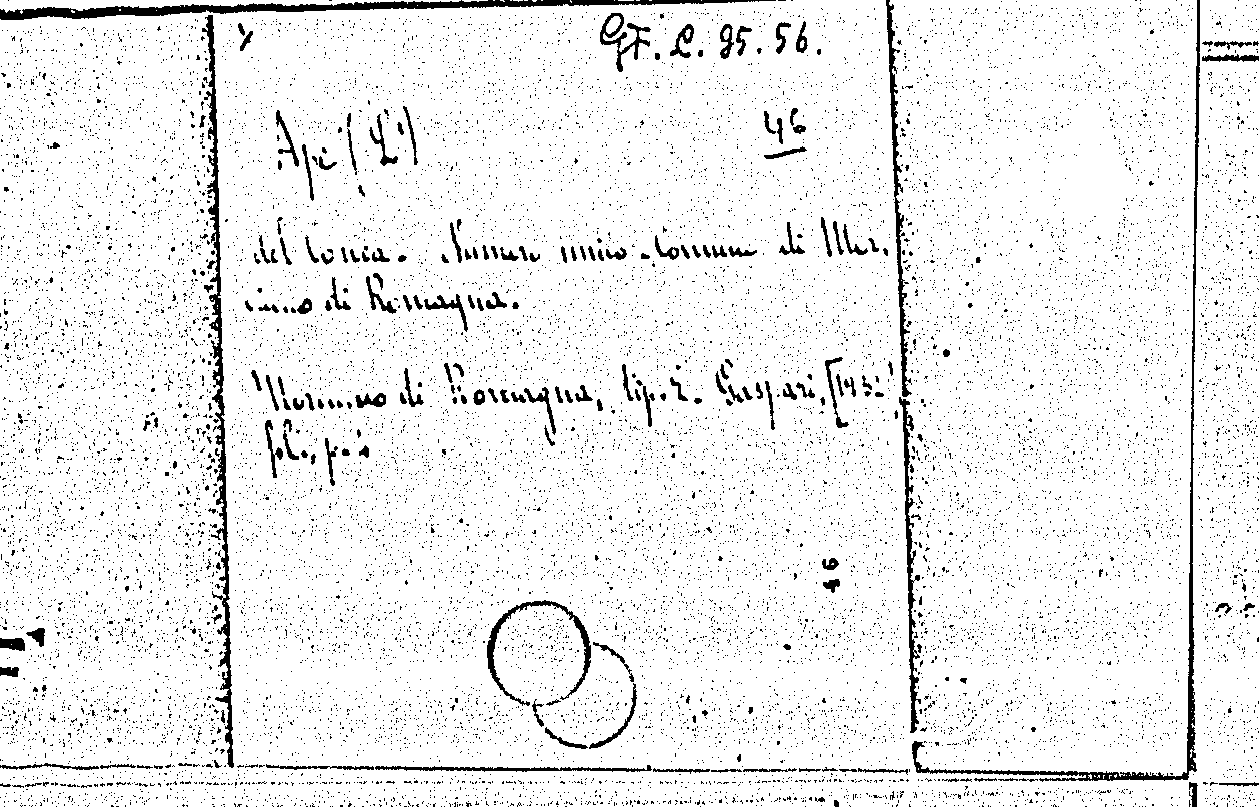 GF. L. 95. 56.
Api (L')
46
del Conca. Numero unico. Comune di Mor.
ciano di Romagna.
Morciano di Romagna, tip. L. Gaspari,
folio,
46